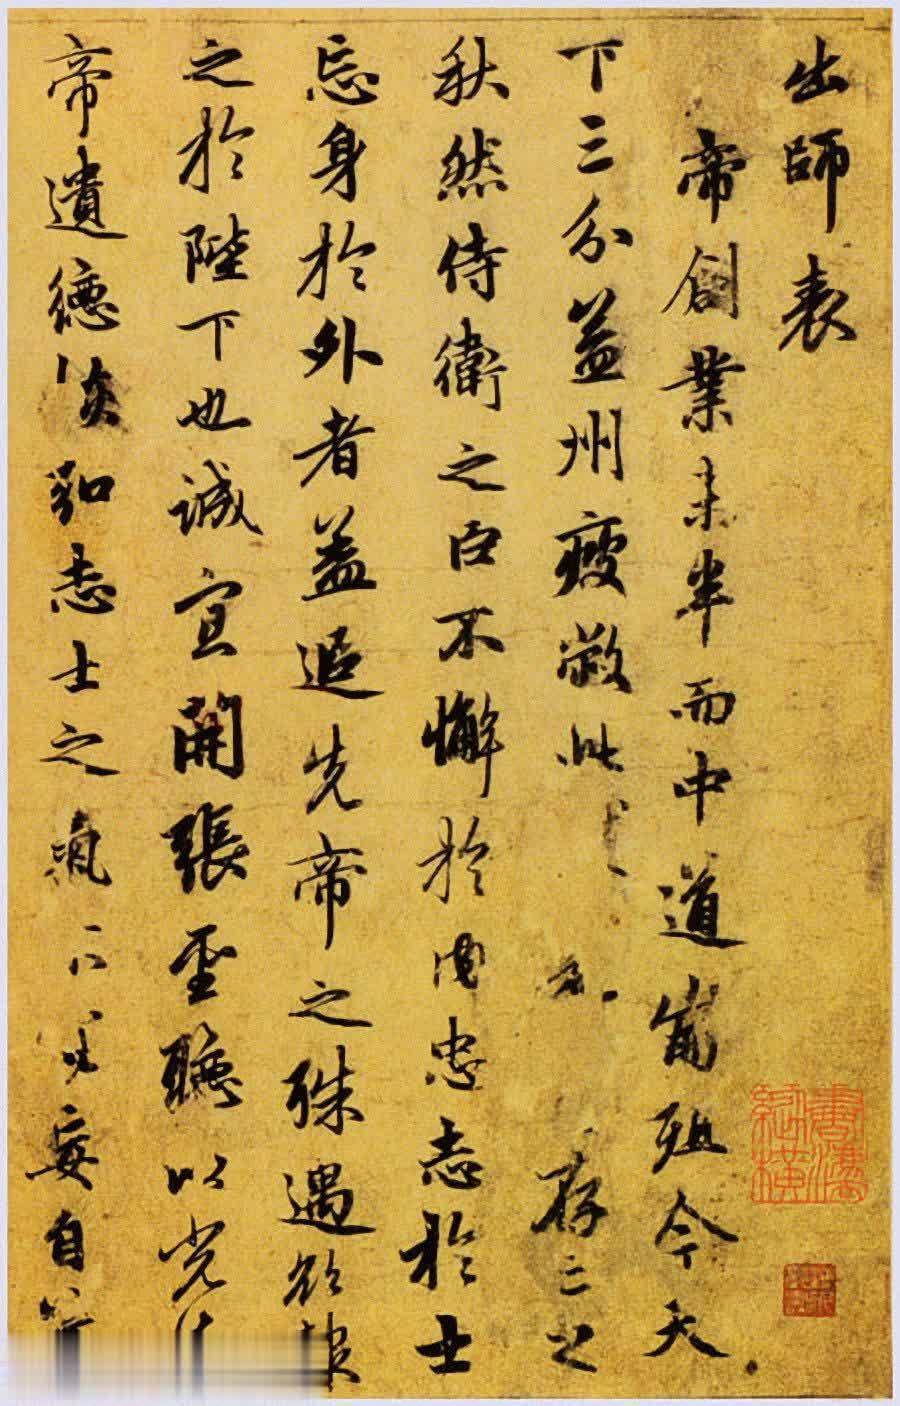 出師表
帝創業未半而中道崩殂今天
下三分益州疲敝此存亡之
秋然侍衛之臣不懈於内忠志於士
忘身於外者蓋追先帝之殊遇欲報
之於陛下也誠宜開張聖聽以光
帝遺德恢弘志士之氣不宜妄自菲